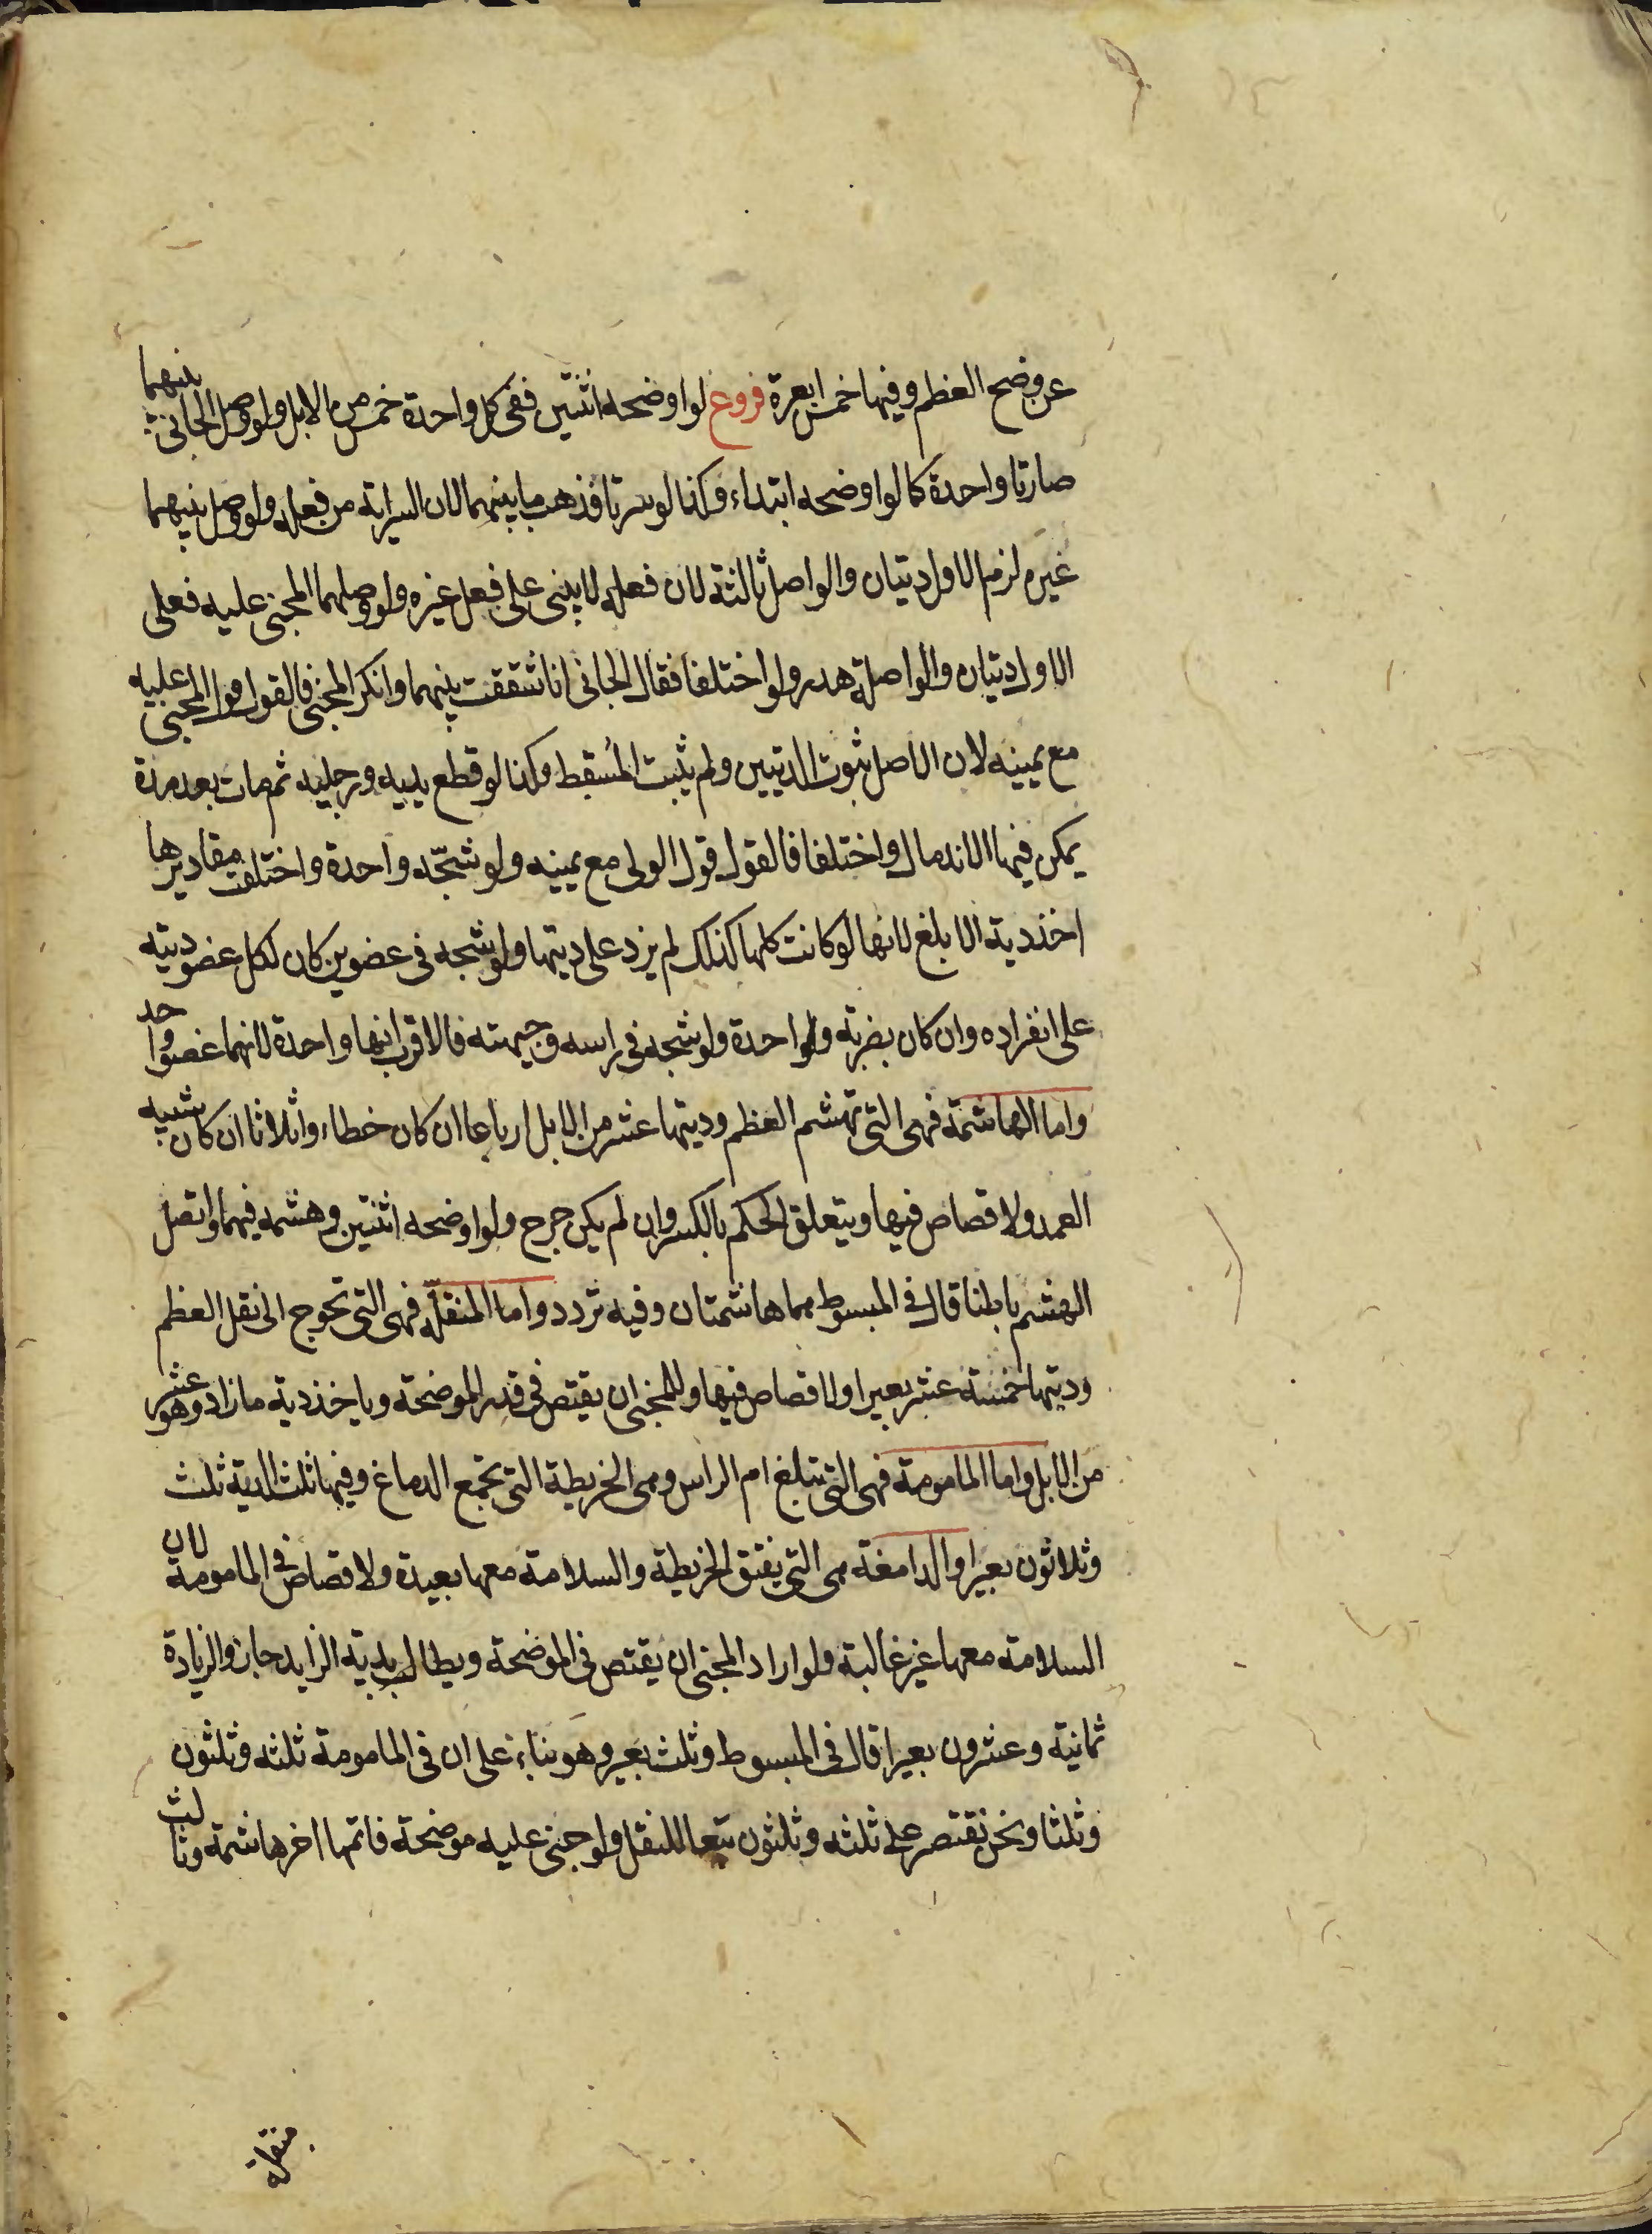 عن وضح العظم وفيها خمس ابعرة فروع لو اوضحه اثنتين ففى كل واحدة خمس من الابل ولو وصل الجانى بينهما
صارتا واحدة كما لو اوضحه ابتداء وكذا لو سرتا فذهب ما بينهما لان السراية من فعله ولو وصل بينهما
غيره لزم الاول ديتان والواصل ثالثة لان فعله لا يبنى على فعل غيره ولو وصلهما المجنى عليه فعلى
الاول ديتان والواصلة هدر ولو اختلفا فقال الجانى انا شققت بينهما وانكر المجنى فالقول قول المجنى عليه
مع يمينه لان الاصل ثبوت الديتين ولم يثبت المُسقط وكذا لو قطع يديه ورجليه ثم مات بعد مدة
يمكن فيها الاندمال واختلفا فالقول قول الولى مع يمينه ولو شجّه واحدة واختلفت مقاديرها
اخذ دية الابلغ لانها لو كانت كلها كذلك لم يزد على ديتها ولو شجه فى عضوين كان لكل عضو ديته
على انفراده وان كان بضربة واحدة ولو شجه فى راسه وجبهته فالاقرب انها واحدة لانهما عضو واحد
واما الهاشمة فهى التى تهشم العظم وديتها عشر من الابل ارباعا ان كان خطاء واثلاثا ان كان شبيه
العمد ولا قصاص فيها ويتعلق الحكم بالكسر وان لم يكن جرح ولو اوضحه اثنتين وهشمه فيهما واتصل
الهشم باطنا قال فى المبسوط هما هاشمتان وفيه تردد واما المنقلّة فهى التى تحوج الى نقل العظم
وديتها خمسة عشر بعيرا ولا قصاص فيها وللمجنى ان يقتص فى قدر الموضحة وياخذ دية ما زاد وهو عشر
من الابل واما المامومة فهى التى تبلغ ام الراس وهى الخريطة التى تجمع الدماغ وفيها ثلث الدية ثلث
وثلاثون بعيرا والدامغة هى التى يفتق الخريطة والسلامة معها بعيدة ولا قصاص فى المامومة لان
السلامة معها غير غالبة ولو اراد المجنى ان يقتص فى الموضحة ويطالب بدية الزايد جاز والزيادة
ثمانية وعشرون بعيرا قال فى المبسوط وثلث بعير وهو بناء على ان فى المامومة ثلثه وثلثون
وثلثا ونحن نقتصر على ثلثه وثلثون تبعا للنقل ولو جنى عليه موضحة فاتمها اخر هاشمة وثالث
منقلة